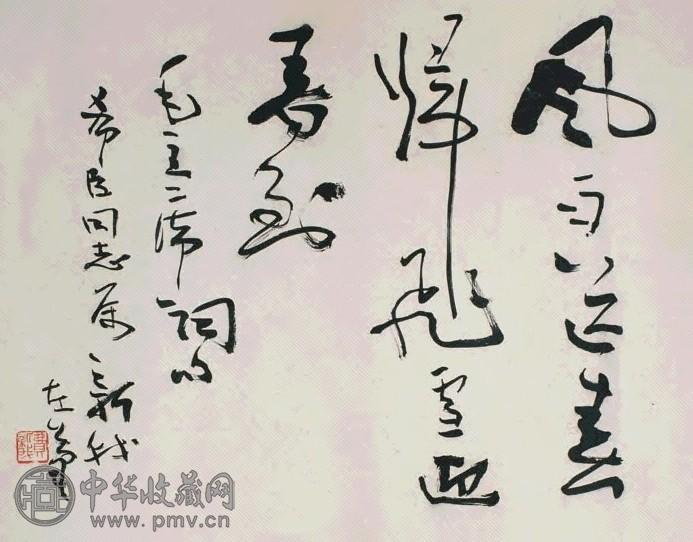 风雨送春
歸飛雪迎
春到
毛主席詞句
希臣同志属 新我
左筆
中华收藏网
www.pmv.cn